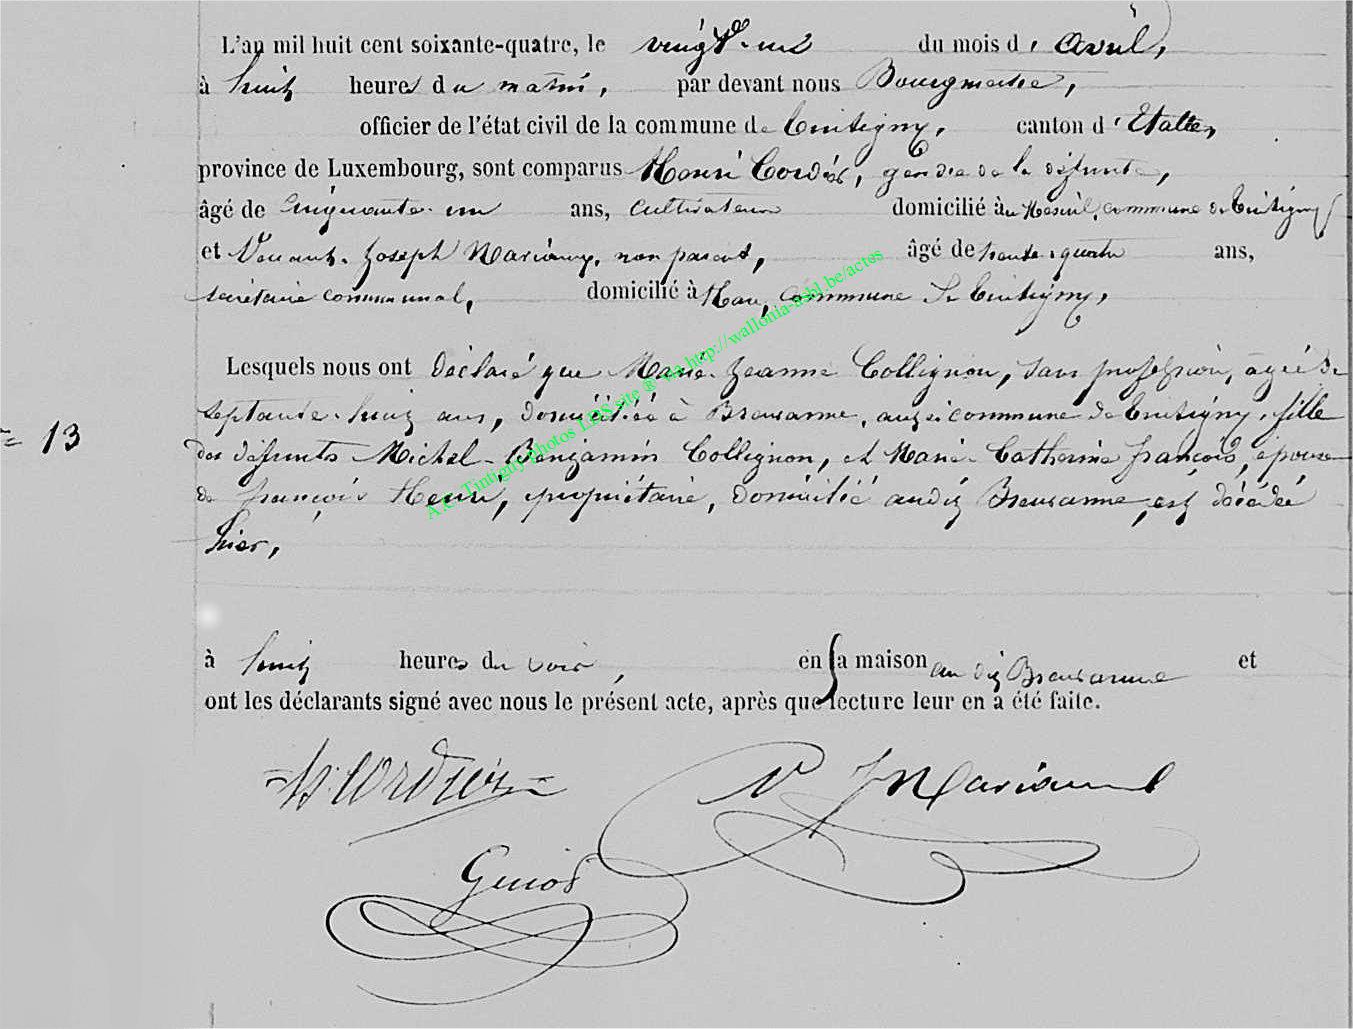 L'an mil huit cent soixante-quatre, le vingt-un du mois d'Avril,
à huit heures du matin, par devant nous Bourgmestre,
officier de l'état civil de la commune de Tintigny, canton d'Etalle,
province de Luxembourg, sont comparus Henri Cordier, gendre de la défunte,
âgé de cinquante-un ans, cultivateur domicilié au Mesnil, commune de Tintigny
et Venant-Joseph Mariamé, non parent, âgé de trente-quatre ans,
secrétaire communal, domicilié à Han, commune de Tintigny,
Lesquels nous ont déclaré que Marie-Jeanne Collignon, sans profession, agée de
septante-huit ans, domiciliée à Breuvanne, aussi commune de Tintigny, fille
des défunts Michel-Benjamin Collignon, et Marie-Catherine François, épouse
13
de François Henri, propriétaire, domicilié audit Breuvanne, est décédée
hier,
à huit heures du soir, en sa maison au dit Breuvanne et
ont les déclarants signé avec nous le présent acte, après que lecture leur en a été faite.
H. Cordier V J Mariamé
A.C. Tintigny photos LDS site ® via http://wallonia-asbl.be/actes